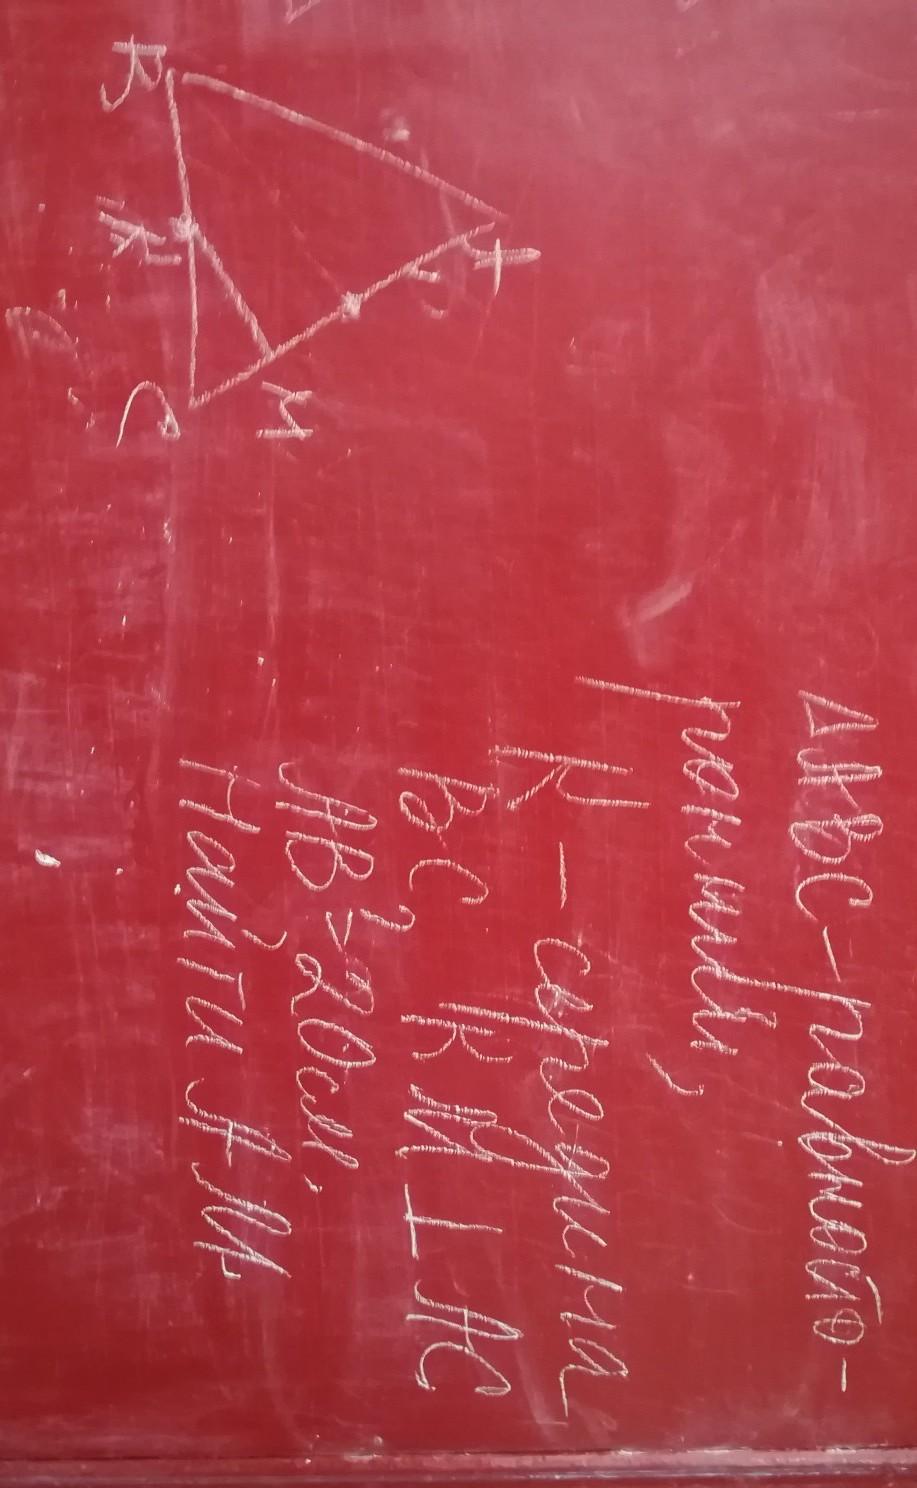 A
B
K
C
M
△ABC - равносто-
ронний,
K - середина
BC, KM ⊥ AC
AB = 20см,
Найти AM.